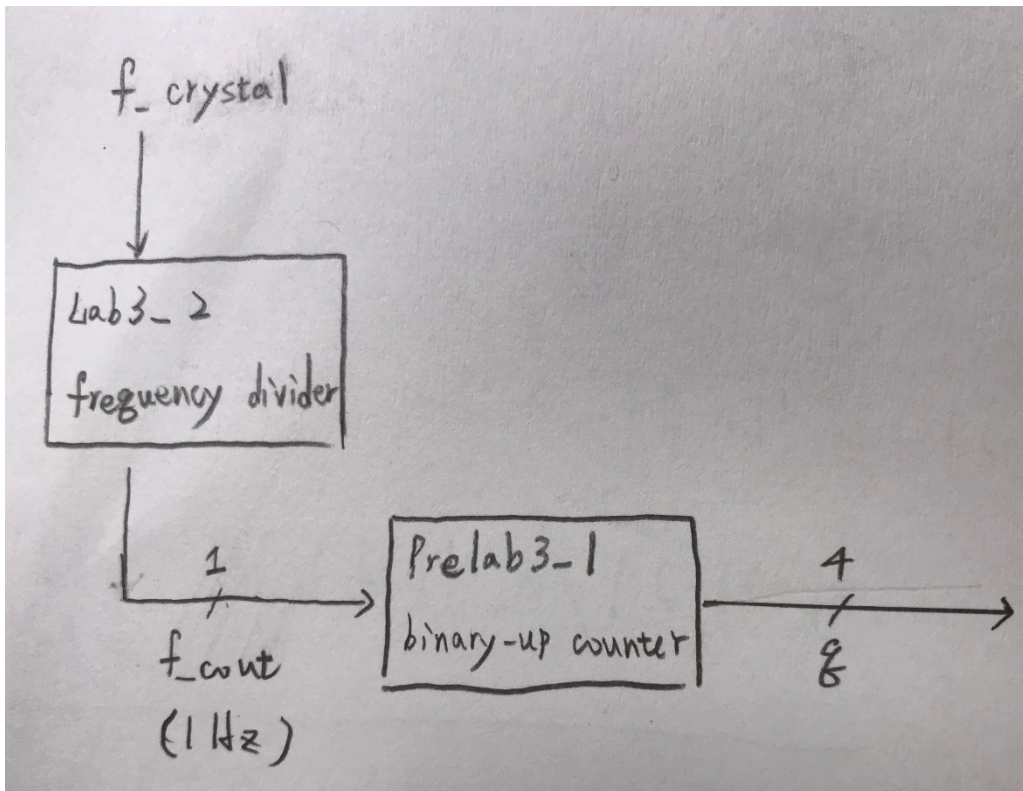 f_crystal
Lab3_2
frequency divider
1
f_cout
(1 Hz)
Prelab3_1
binary-up counter
4
q